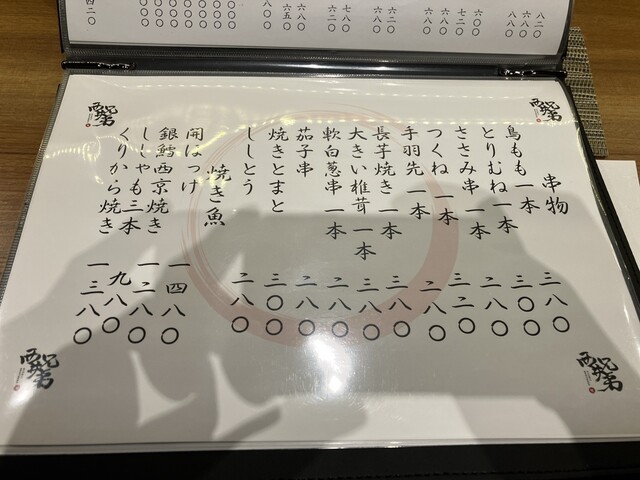 串物
鳥もも一本 三八〇
とりむね一本 三〇〇
ささみ串一本 二八〇
つくね一本 三二〇
手羽先一本 二八〇
長芋焼き一本 三八〇
大きい椎茸一本 三八〇
軟白葱串一本 二八〇
茄子串 二八〇
焼きとまと 三〇〇
ししとう 二八〇
焼き魚
開ほっけ 一四八〇
銀鱈西京焼き 一二八〇
ししゃも三本 九八〇
くりから焼き 一三八〇